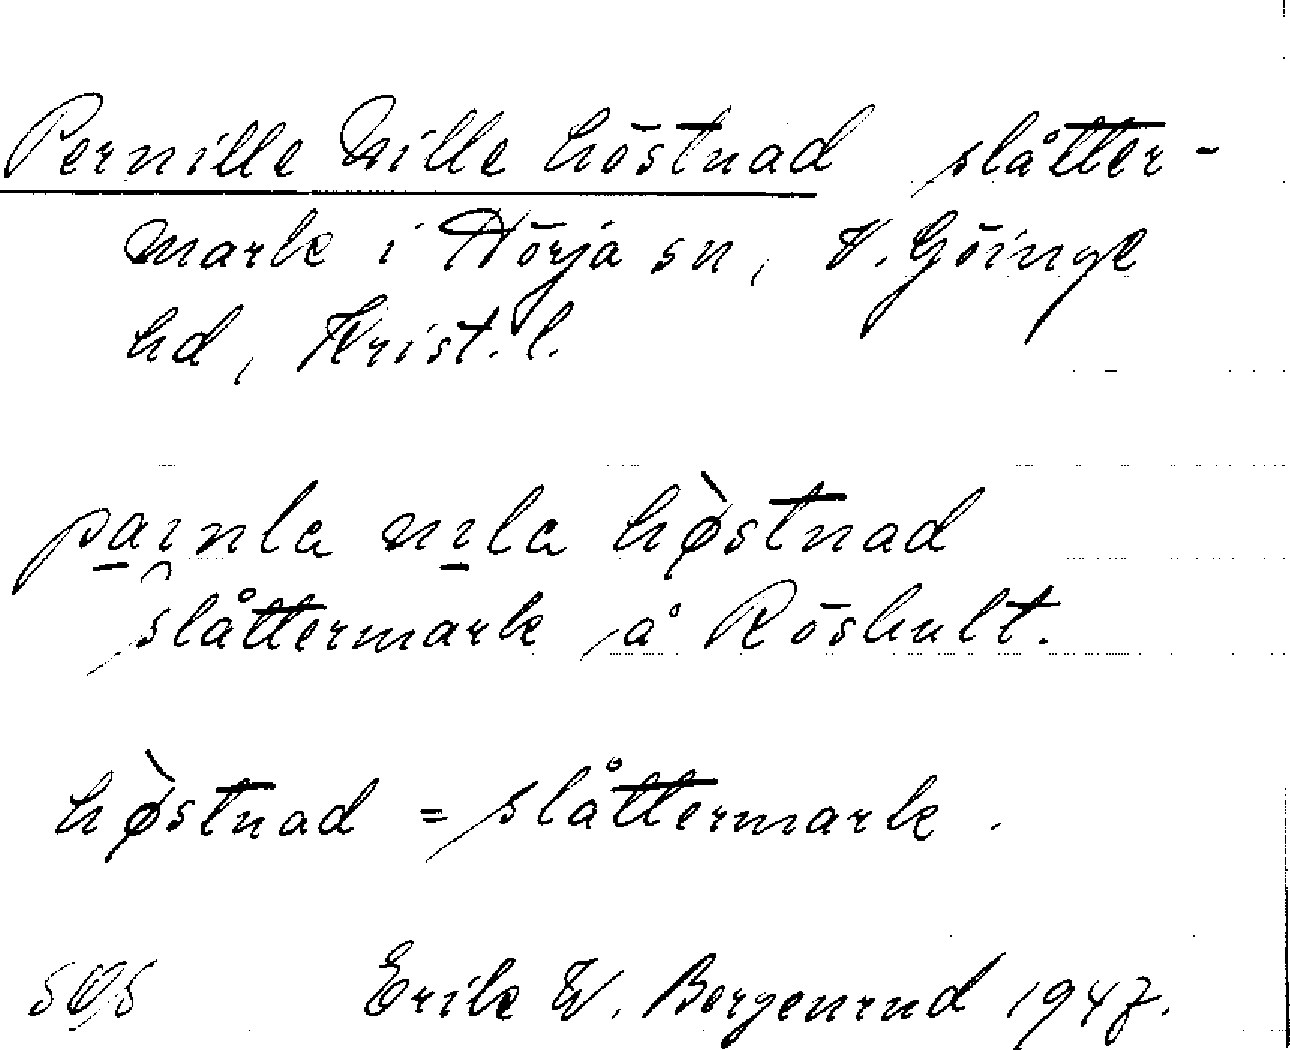 Pernille Wille höstnad slåtter-
mark i Hörja sn, V. Göinge
hd, Krist. l.
höstnad
slåttermark på Röshult.
hø̀stnad = slåttermark.
Erik W. Bergenrud 1947.